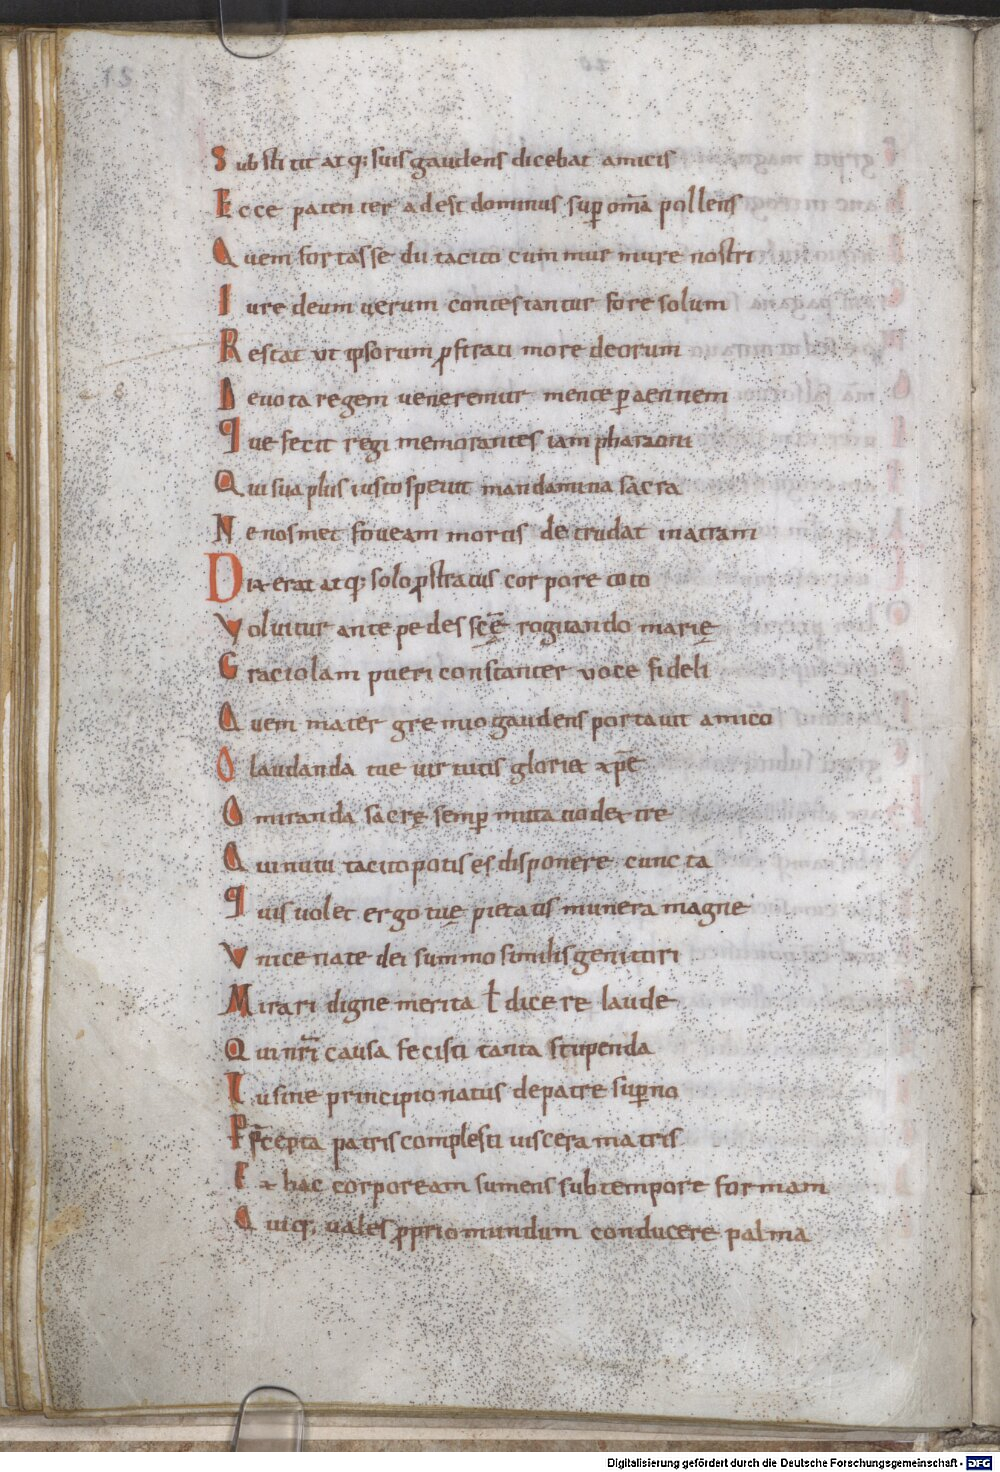 15
Substitit atq; suis gaudens dicebat amicis
Ecce patenter adest dominus sup om̄a pollens
Quem fortasse dii tacito cum murmure nostri
Iure deum uerum contestantur fore solum
Restat ut ipsorum ꝓstrati more deorum
Deuota regem ueneremur mente ꝑaennem
Que fecit regi memorantes iam pharaoni
Qui sua plus iusto spreuit mandamina sacra
Ne nosmet foueam mortis detrudat in atram
Dixerat atq; solo ꝓstratus corpore toto
Voluitur ante pedes scę̄ rogitando marię
Graciolam pueri constanter uoce fideli
Quem mater gremio gaudens portauit amico
O laudanda tue uirtutis gloria xp̄e
O miranda sacrę semꝑ mutatio dextre
Qui nutu tacito potis es disponere cuncta
Quis ualet ergo tuę pietatis munera magne
Vnice nate dei summo similis genitori
Mirari digne merita ł dicere laude
Qui nr̄i causa fecisti tanta stupenda
Tu sine principio natus de patre suꝑno
P̄cepta patris complesti uiscera matris
Ex hac corpoream sumens sub tempore formam
Quiq; uales ꝓprio mundum conducere palma
Digitalisierung gefördert durch die Deutsche Forschungsgemeinschaft - DFG